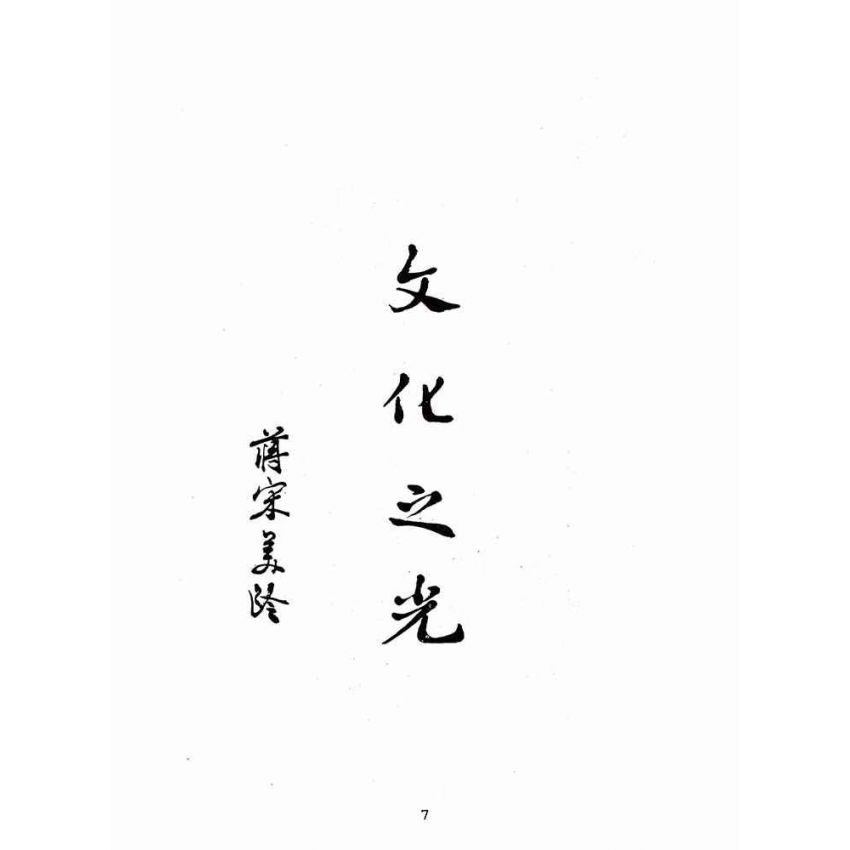 文化之光
蔣宋美齡
7